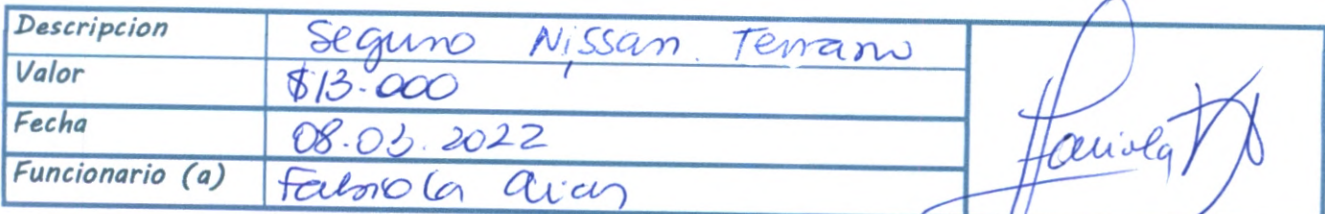 Descripcion Seguro Nissan Terrano
Valor $13.000
Fecha 08.03.2022
Funcionario (a) Fabiola